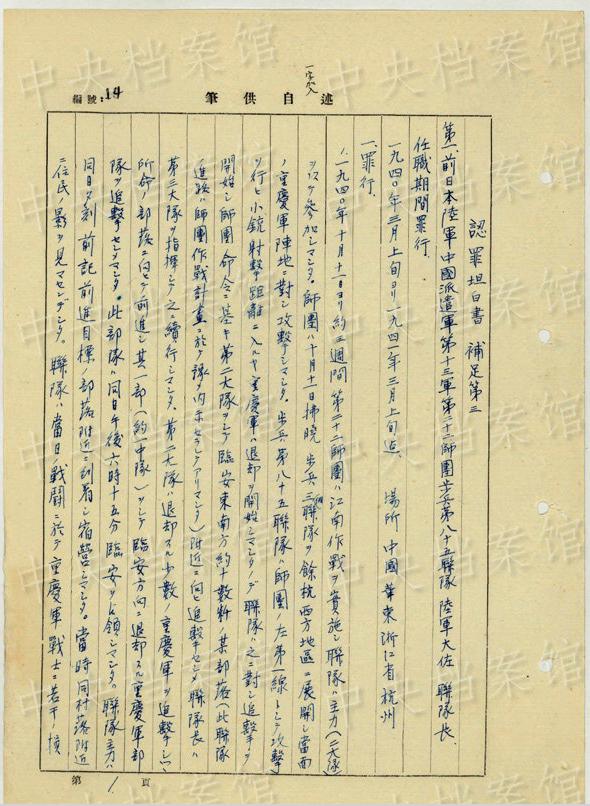 編號: 14
筆供自述
一字加入
認罪坦白書 補足第三
第一、前日本陸軍中國派遣軍第十三軍第二十二師團步兵第八十五聯隊 陸軍大佐 聯隊長
任職期間罪行.
一九四〇年三月上旬ヨリ一九四二年三月上旬迄. 場所 中國華東浙江省杭州
一、罪行.
八一九四〇年十月十一日ヨリ約二週間 第二十二師團ハ江南作戰ヲ實施シ聯隊ハ主力(二大隊
ヲ以テ參加シマシタ。師團ハ十月十一日拂曉 步兵三聯隊ヲ餘杭西方地區ニ展開シ當面
ノ重慶軍陣地ニ對シ攻擊シマシタ。步兵第八十五聯隊ハ師團ノ左第一線トシテ攻擊
ヲ行ヒ小銃射擊距離ニ入ルヤ重慶軍ハ退却ヲ開始シマシタノデ聯隊ハ之ニ對シ追擊ヲ
開始シ師團命令ニ基キ第二大隊ヲシテ臨安東南方約十數粁ノ某部落(此聯隊
ノ進路ハ師團作戰計畫ニ於テ豫メ內示セラレテアリマシタ)附近ニ向ヒ追擊セシメ聯隊長ハ
第三大隊ヲ指揮シテ之ニ續行シマシタ。第二大隊ハ退却スル少數ノ重慶軍ヲ追擊シツツ
所命ノ部落ニ向ヒテ前進シ其一部(約一中隊)ヲシテ臨安方向ニ退却スル重慶軍部
隊ヲ追擊セシメマシタ。此部隊ハ同日午後六時十五分臨安ヲ占領シマシタ。聯隊主力ハ
同日夕刻前記前進目標ノ部落附近ニ到着シ宿營シマシタ。當時同村落附近
ニ住民ノ影ヲ見マセンデシタ。聯隊ハ當日戰鬪ニ於テ重慶軍戰士ニ若干ノ損
第 1 頁
中央档案馆